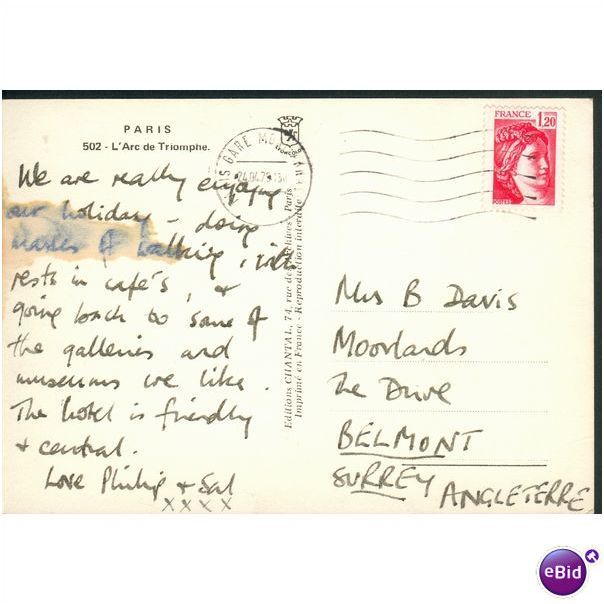 PARIS
502 - L'Arc de Triomphe.
We are really enjoying
our holiday - doing
of walking, with
rests in café's, &
going back to some of
the galleries and
museums we like.
The hotel is friendly
& central.
Love Philip & Sal
xxxx
Editions CHANTAL, 74, rue des Archives - Paris
Imprimé en France - Reproduction interdite
PARIS GARE
24.04.79
FRANCE
1,20
POSTES
Mrs B Davis
Moorlands
The Drive
BELMONT
SURREY ANGLETERRE
eBid